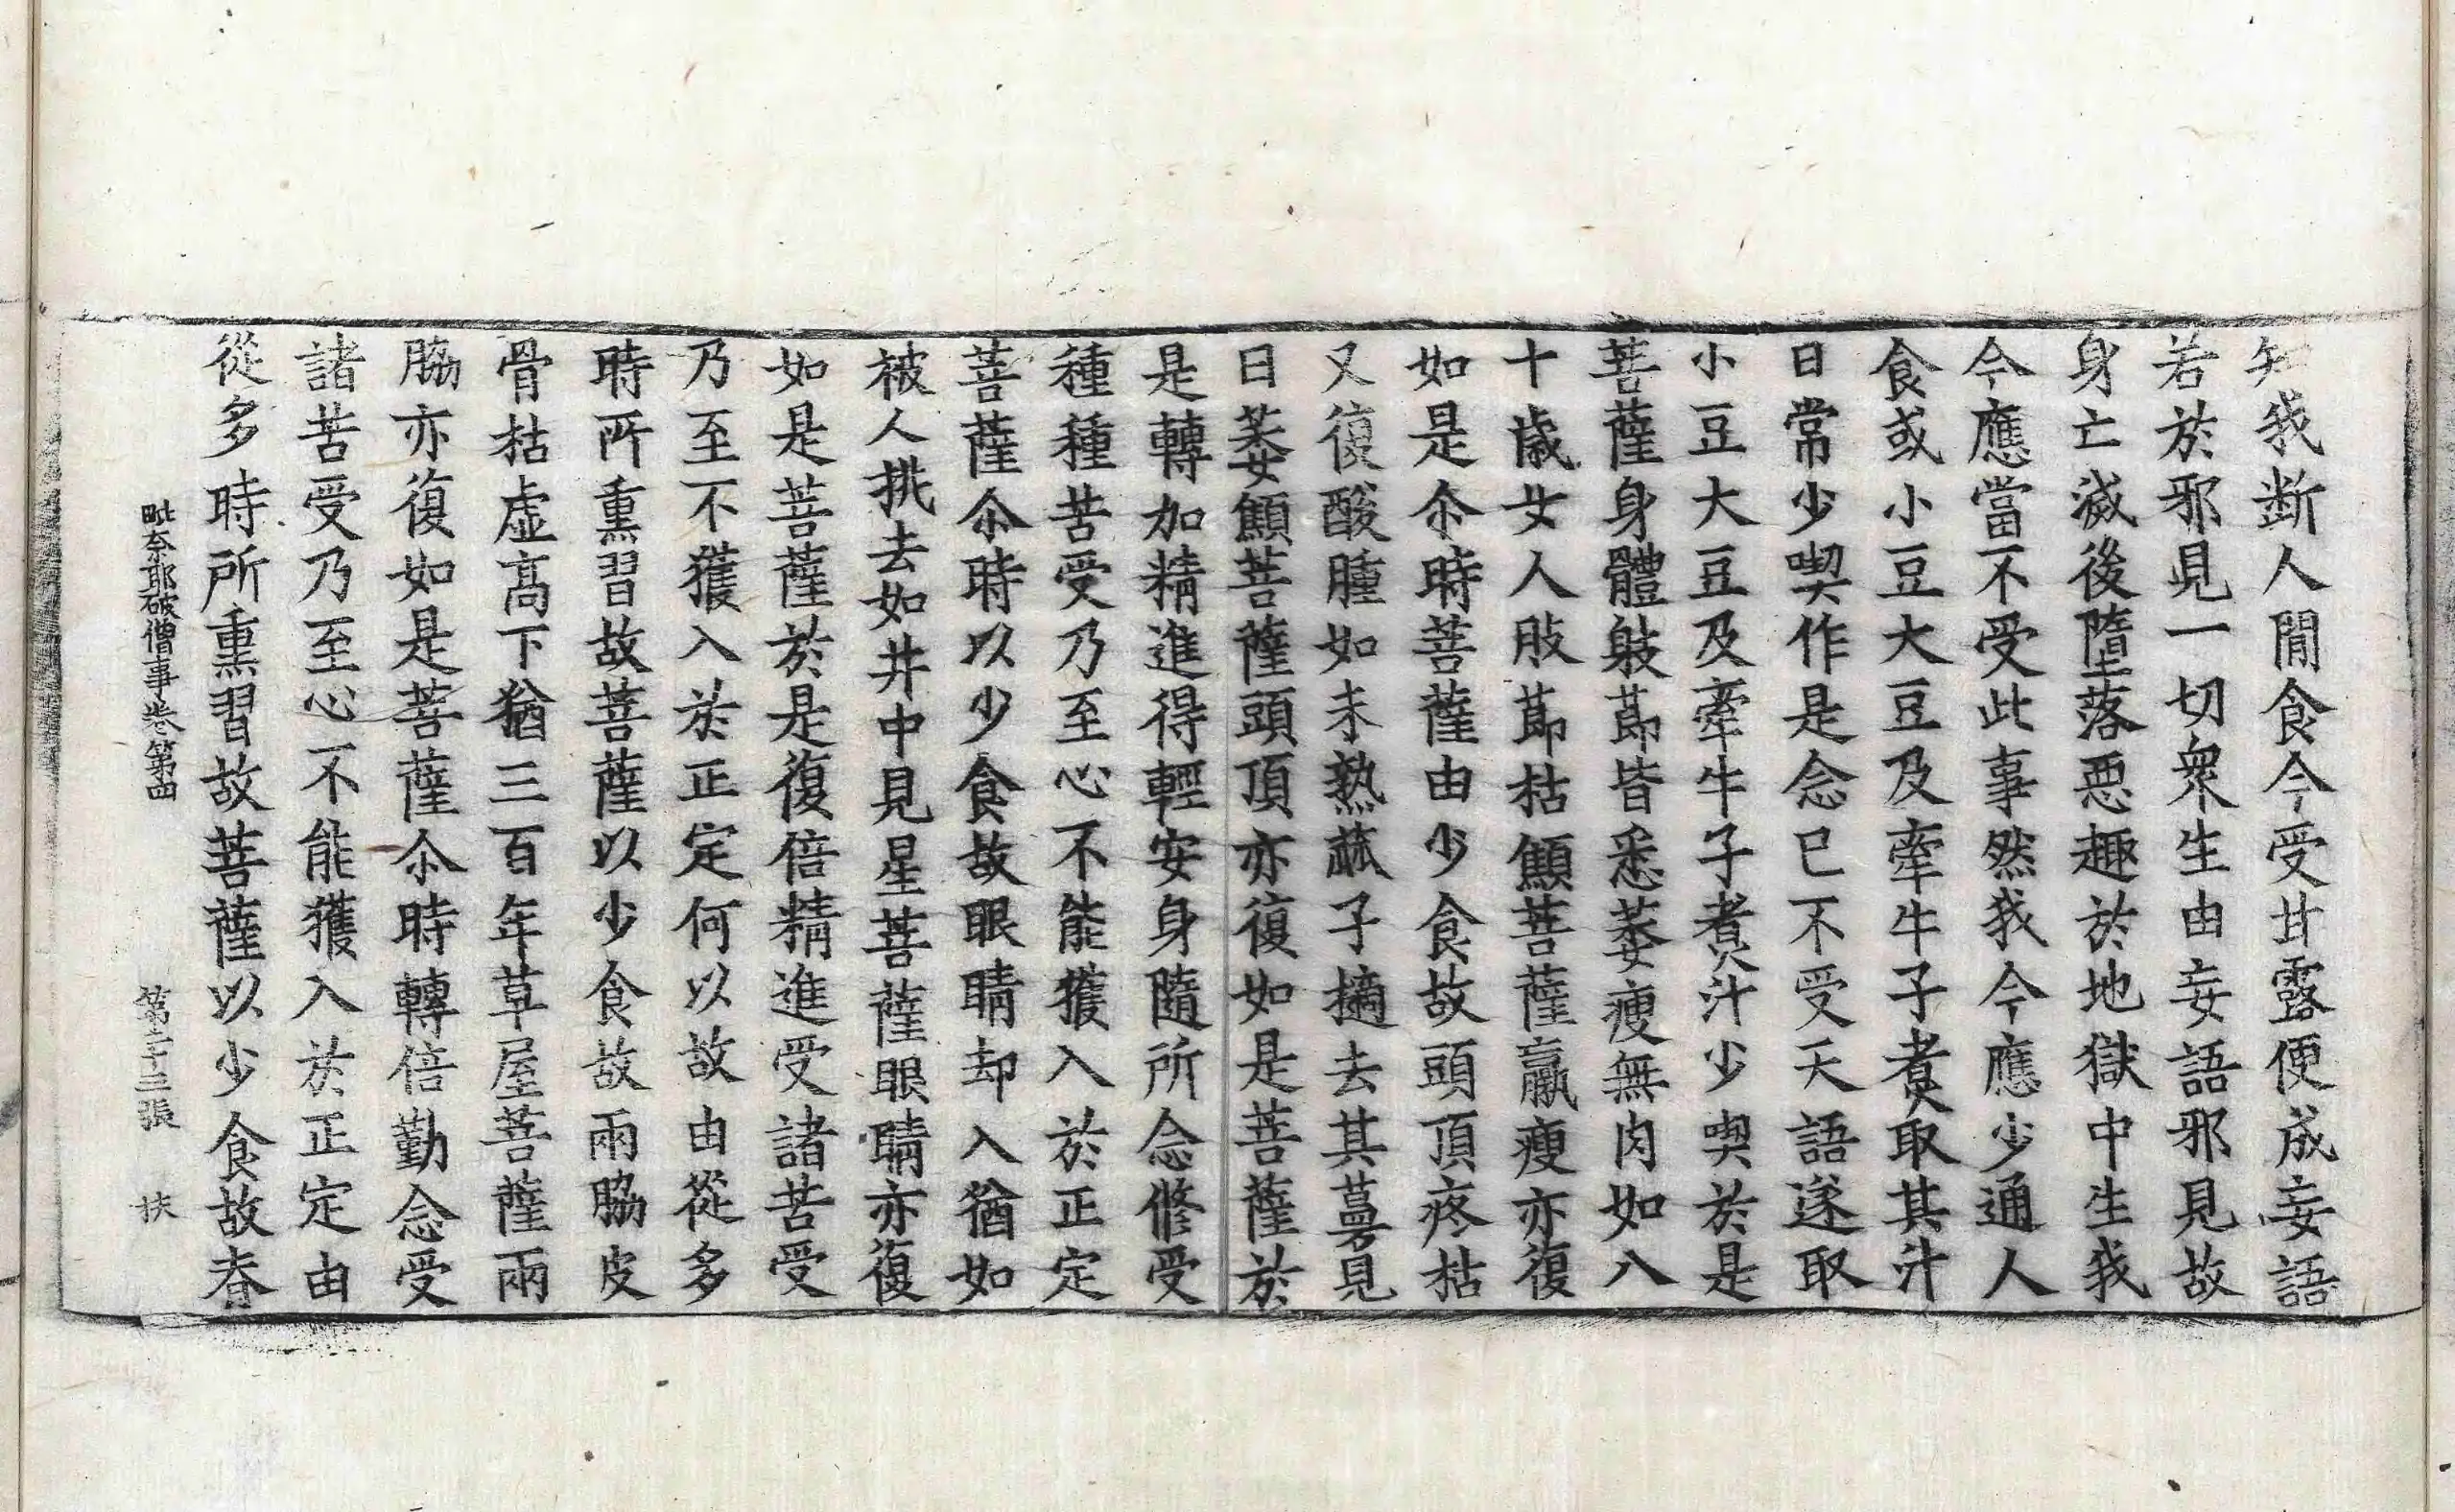 知我断人閒食今受甘露便成妄語
若於邪見一切衆生由妄語邪見故
身亡滅後墮落惡趣於地獄中生我
今應當不受此事然我今應少通人
食或小豆大豆及牽牛子煮取其汁
日常少喫作是念已不受天語遂取
小豆大豆及牽牛子煮汁少喫於是
菩薩身體躰莭皆悉萎瘦無肉如八
十歲女人肢莭枯顦菩薩羸瘦亦復
如是尒時菩薩由少食故頭頂疼枯
又復酸腫如未熟蓏子擿去其蔓見
日萎顦菩薩頭頂亦復如是菩薩於
是轉加精進得輕安身隨所念修受
種種苦受乃至心不能獲入於正定
菩薩尒時以少食故眼睛却入猶如
被人挑去如井中見星菩薩眼睛亦復
如是菩薩於是復倍精進受諸苦受
乃至不獲入於正定何以故由從多
時所熏習故菩薩以少食故兩脇皮
骨枯虛高下猶三百年草屋菩薩兩
脇亦復如是菩薩尒時轉倍勤念受
諸苦受乃至心不能獲入於正定由
從多時所熏習故菩薩以少食故脊
毗奈耶破僧事卷第四 第二十三張 扶